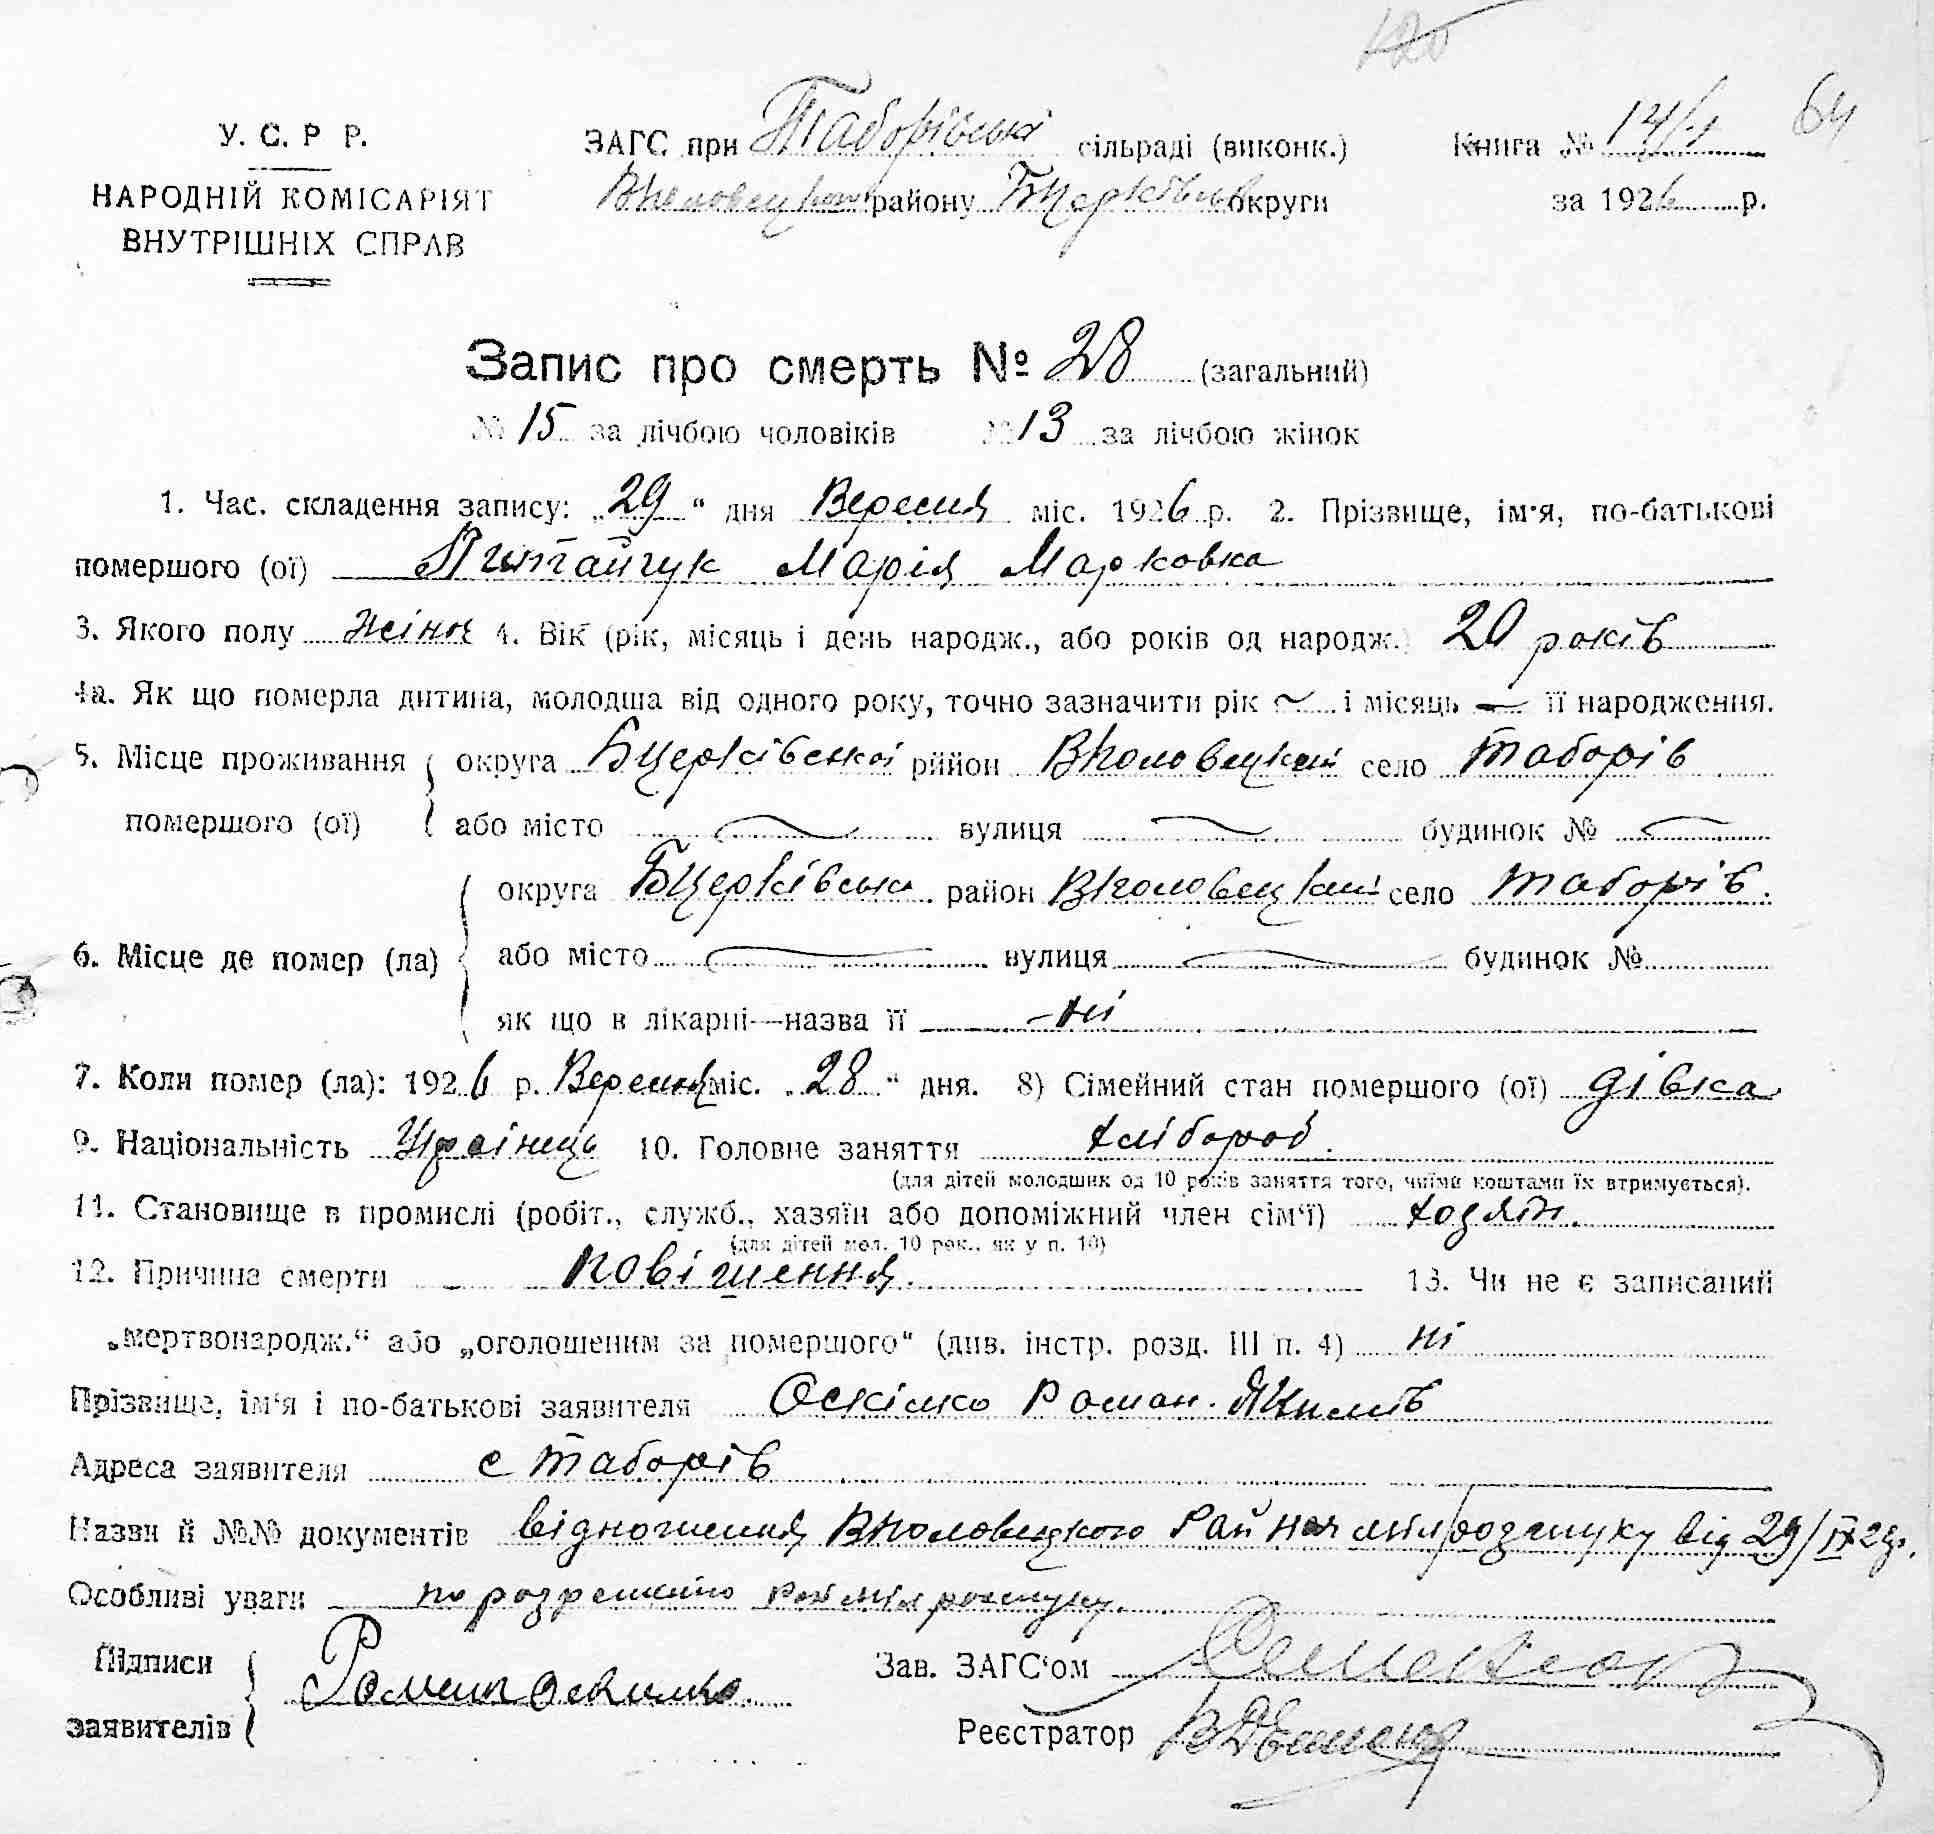 120
У. С. Р. Р. ЗАГС при Таборівські сільраді (виконк.) Книга № 64
НАРОДНІЙ КОМІСАРІЯТ району округи за 1926 р.
ВНУТРІШНІХ СПРАВ
Запис про смерть № 28 (загальний)
№ 15 за лічбою чоловіків № 13 за лічбою жінок
1. Час. складення запису: „29“ дня Вересня міс. 1926 р. 2. Прізвище, ім'я, по-батькові
помершого (ої) Марія Марковна
3. Якого полу жіноч 4. Вік (рік, місяць і день народж., або років од народж.) 20 років
4а. Як що померла дитина, молодша від одного року, точно зазначити рік ~ і місяць — її народження.
5. Місце проживання округа Бцерківської рййон Вполовецкий село Таборів
помершого (ої) або місто вулиця будинок №
округа Бцерківськ район Вполовецкий село Таборів.
6. Місце де помер (ла) або місто вулиця будинок №
як що в лікарні—назва її – ні
7. Коли помер (ла): 1926 р. Вересня міс. „28“ дня. 8) Сімейний стан помершого (ої) дівка
9. Національність 10. Головне заняття хлібороб.
(для дітей молодших од 10 років заняття того, чиїми коштами їх втримується).
11. Становище в промислі (робіт., служб., хазяїн або допоміжний член сім'ї) хозяїн.
(для дітей мол. 10 рок., як у п. 10)
12. Причина смерти повішення. 13. Чи не є записаний
„мертвонародж.“ або „оголошеним за помершого“ (див. інстр. розд. III п. 4) ні
Прізвище, ім'я і по-батькові заявителя Оскілко Роман. Якимів
Адреса заявителя с Таборів
Назви й №№ документів відношення Вполовецкого Рай розшуку від 29/IX 26р.
Особливі уваги по розрешению
Підписи Роман Оскилко. Зав. ЗАГС'ом
заявителів Реєстратор